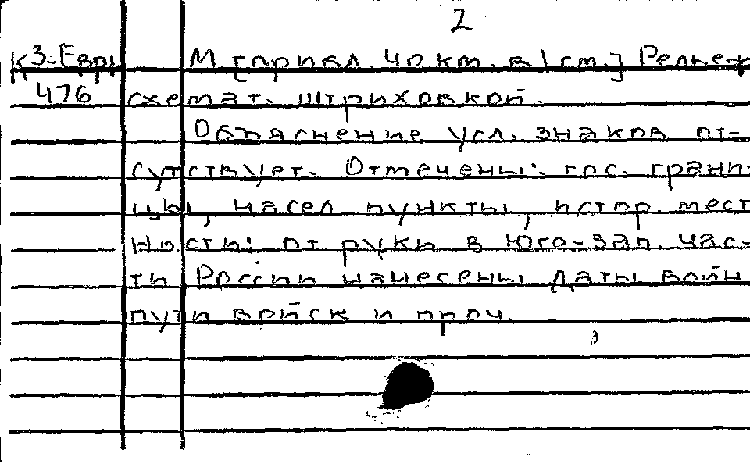 2
К3-Евр М [приbл. 40 км. в 1 см.] Рельеф
476 схемат. штриховкой.
Объяснение усл. знаков от-
сутствует. Отмечены: гос. грани-
цы, насел пункты, истор мест
ности: от руки в Юго-зап. час-
ти России нанесены даты войн
пути войск и проч.